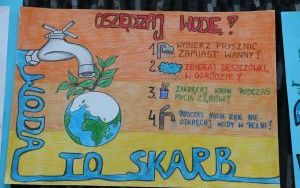 OSZĘDZAJ WODĘ!
1 WYBIERZ PRYSZNIC
ZAMIAST WANNY!
2 ZBIERAJ DESZCZÓWKĘ
W OGRODZIE!
3 ZAKRĘCAJ KRAN PODCZAS
MYCIA ZĘBÓW!
4 PODCZAS MYCIA RĄK NIE
ODKRĘCAJ WODY W PEŁNI!
WODA
TO SKARB